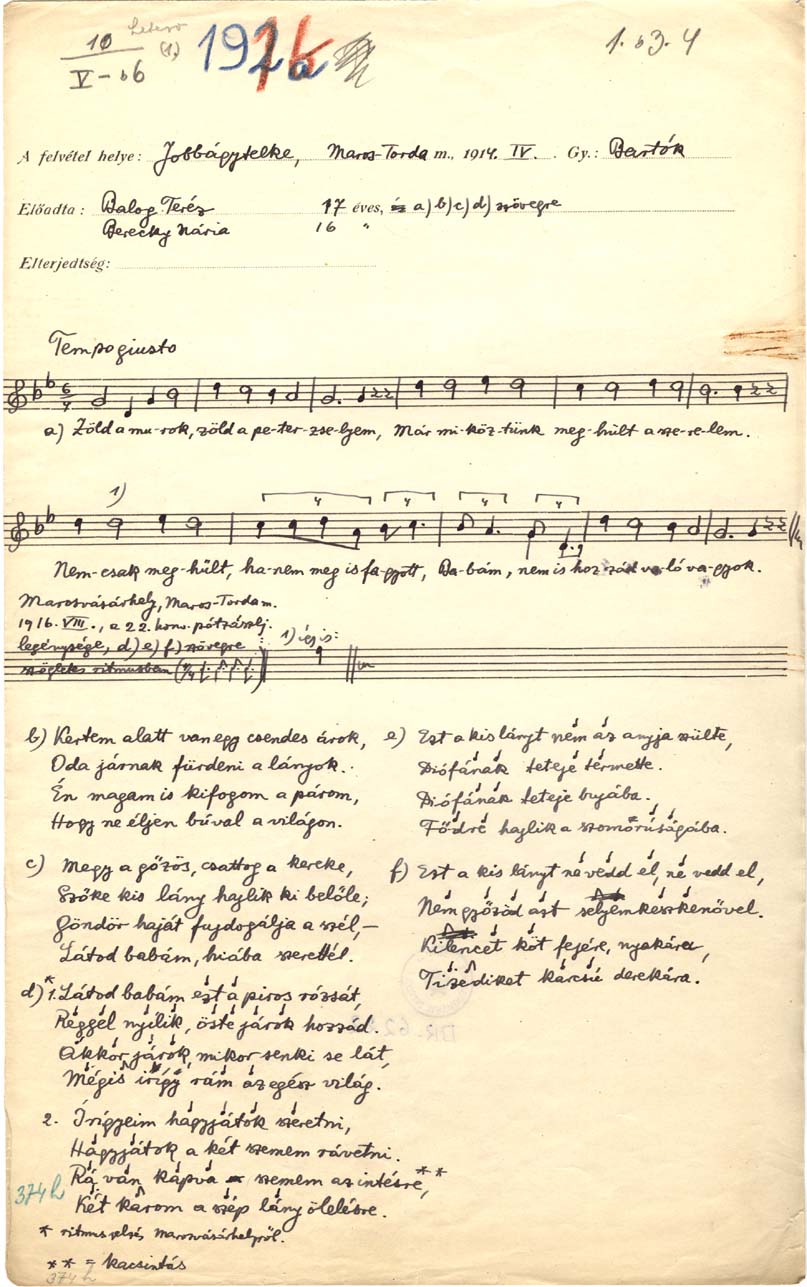 10
V – b6
(1)
1. b3. 4
A felvétel helye: Jobbágytelke, Maros-Torda m., 1914. IV. Gy.: Bartók
Előadta: Balog Teréz 17 éves, és a) b) c) d) szövegre
Bereczky Mária 16 "
Elterjedtség:
Tempo giusto
a) Zöld a mu-rok, zöld a pe-ter-zse-lyem, Már mi-köz-tünk meg-hült a sze-re-lem.
1)
Nem-csak meg-hült, ha-nem meg is fa-gyott, Ba-bám, nem is hoz-zád va-ló va-gyok.
Marosvásárhely, Maros-Torda m.
1916. VIII., a 22. honv. pótzászlj.
legénysége, d) e) f) szövegre
szögletes ritmusban
1) így is:
b) Kertem alatt van egy csendes árok,
Oda járnak fürdeni a lányok.
Én magam is kifogom a párom,
Hogy ne éljen búval a világon.
c) Megy a gőzös, csattog a kereke,
Szőke kis lány hajlik ki belőle;
Göndör haját fujdogálja a szél, –
Látod babám, hiába szerettél.
d) * 1. Látod babám ezt a piros rózsát,
Réggel nyílik, öste járok hozzád.
Akkor járok, mikor senki se lát,
Mégis irígy rám az egész világ.
2. Írígyeim hagyjátok szeretni,
Hagyjátok a két szemem rávetni.
Rá van kapva szemem az intésre, **
Két karom a szép lány ölelésre.
* ritmus jelzés Marosvásárhelyről.
** = kacsintás
374 h
374 h
e) Ezt a kis lányt nem az anyja szülte,
Diófának teteje termette.
Diófának teteje bujába.
Födre hajlik a szomorúságába.
f) Ezt a kis lányt ne vedd el, ne vedd el,
Nem győzöd azt selyemkeszkenővel.
Kilencet köt fejére, nyakára,
Tizediket karcsú derekára.